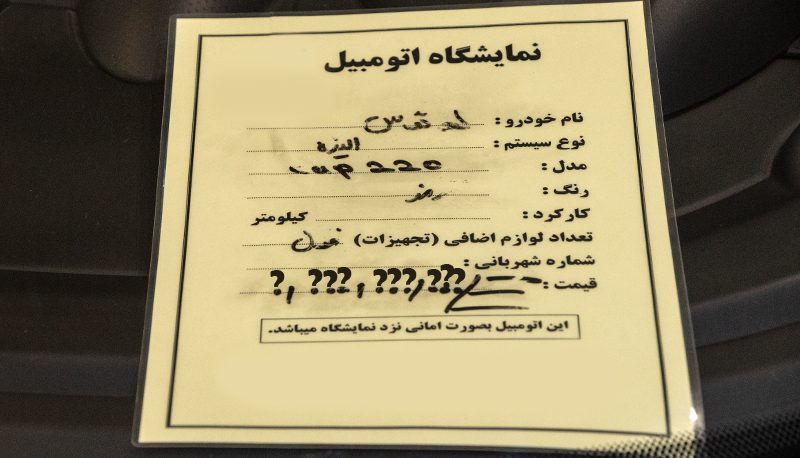 نمایشگاه اتومبیل
نام خودرو :
نوع سیستم :
مدل : cup 220
رنگ :
کارکرد : کیلومتر
تعداد لوازم اضافی (تجهیزات) فول
شماره شهربانی :
قیمت : ?, ???, ???, ???
این اتومبیل بصورت امانی نزد نمایشگاه میباشد.